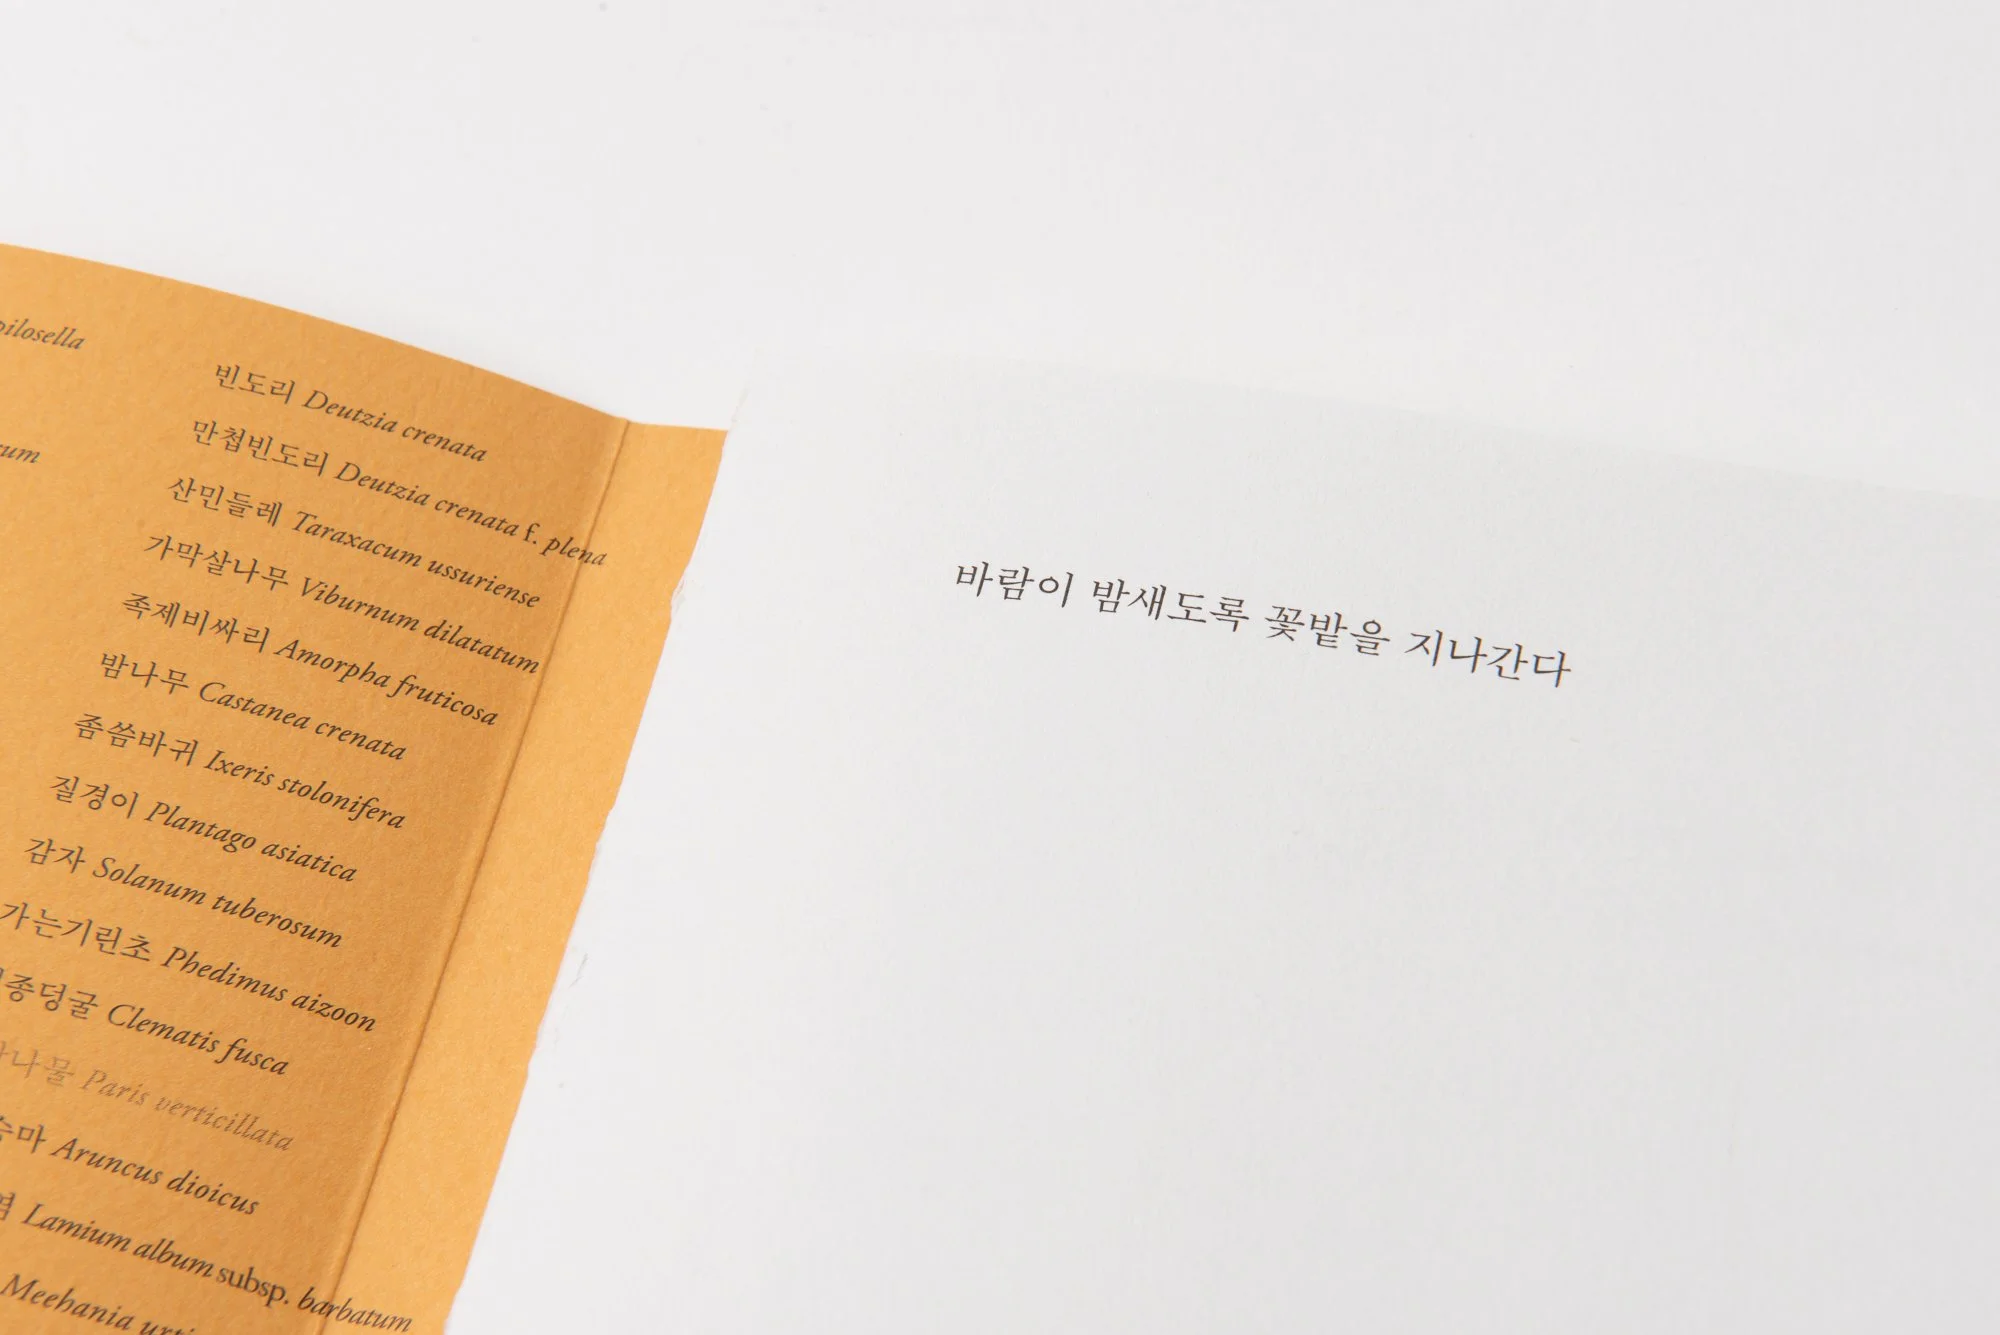 pilosella
빈도리 Deutzia crenata
만첩빈도리 Deutzia crenata f. plena
산민들레 Taraxacum ussuriense
가막살나무 Viburnum dilatatum
족제비싸리 Amorpha fruticosa
밤나무 Castanea crenata
좀씀바귀 Ixeris stolonifera
질경이 Plantago asiatica
감자 Solanum tuberosum
가는기린초 Phedimus aizoon
종덩굴 Clematis fusca
나물 Paris verticillata
승마 Aruncus dioicus
Lamium album subsp. barbatum
Meehania
바람이 밤새도록 꽃밭을 지나간다